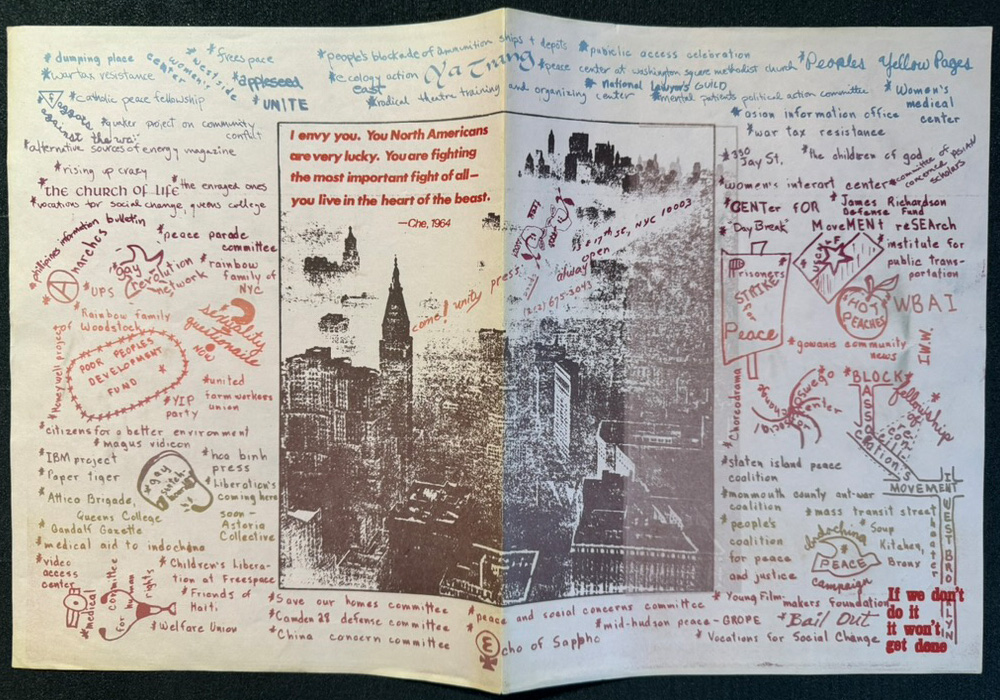 * dumping place
* westside women's center
* freespace
* people's blockade of ammunition ships + depots
* publiclic access celebration
* Peoples Yellow Pages
* war tax resistance
* appleseed
* ecology action east
Ya Trang
* peace center at washington square methodist church
* National Lawyer's GUILD
* Women's medical center
* UNITE
* radical theatre training and organizing center
* mental patients political action committee
* faggots against the war
* catholic peace fellowship
* asian information office
* war tax resistance
* quaker project on community conflict
* alternative sources of energy magazine
* rising up crazy
* the church of life
* the enraged ones
* vocations for social change, queens college
I envy you. You North Americans
are very lucky. You are fighting
the most important fight of all—
you live in the heart of the beast.
—Che, 1964
* 330 Jay St.
* the children of god
* committee of concerned ASIAN scholars
* women's interart center
* CENTer FOR MoveMENT reSEArch
* James Richardson Defense Fund
* Day Break
* philipines information bulletin
Anarchos
* peace parade committee
* gay revolution network
* rainbow family of NYC
* UPS
come! unity press
17th st, NYC 10003
always open
(212) 675-3043
* institute for public transportation
Prisoners STRIKE for Peace
* HOT PEACHES
WBAI
I.W.W.
* Rainbow family Woodstock
* sexuality questionaire
* Honeywell project
POOR PEOPLES
DEVELOPMENT
FUND
* united farm workers union
* YIP party
* gowanus community news
* Choreodrama
* oswego social change center
* BLOCK ASSOCIATIONS
* fellowship of reconciliation
* citizens for a better environment
* magus vidicon
* IBM project
* Paper tiger
* gay switchboard
* hoa binh press
* Liberation's coming here soon – Astoria Collective
* Attica Brigade, Queens College
* Gandalf Gazette
* medical aid to indochina
* video access center
* staten island peace coalition
* monmouth county anti-war coalition
* people's coalition for peace and justice
* mass transit street theater
* Indochina PEACE campaign
* Soup Kitchen, Bronx
MOVEMENT IN WEST BROOKLYN
* medical committee for human rights
* Children's Liberation at Freespace
* Friends of Haiti
* Welfare Union
* Save our homes committee
* Camden 28 defense committee
* China concern committee
* peace and social concerns committee
* mid-hudson peace-GROPE
* Echo of Sappho
* Young Filmmakers foundation
* Bail Out
* Vocations for Social Change
If we don't
do it
it won't
get done